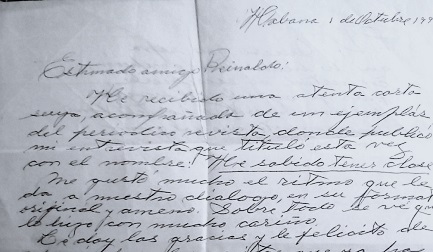 Habana 1 de Octubre 199
Estimado amigo Reinaldo:
He recibido una atenta carta
suya, acompañada de un ejemplar
del periodico revista, donde publicó
mi entrevista que tituló esta vez
con el nombre: He sabido tener clase
Me gustó mucho el ritmo que le
da a nuestro dialogo, en su forma
original y ameno. Sobre todo se ve que
lo hizo con mucho cariño.
Le doy las gracias y le felicito de
que ya ha